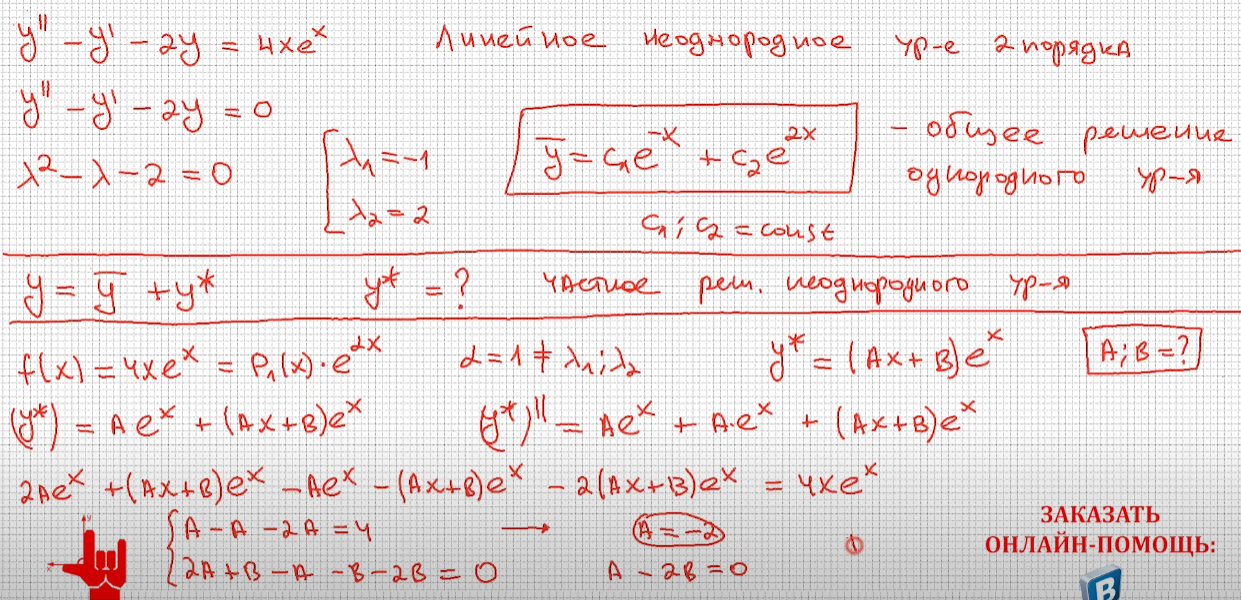 y'' − y' − 2y = 4xeˣ Линейное неоднородное ур-е 2 порядка
y'' − y' − 2y = 0
λ² − λ − 2 = 0 [ λ₁ = −1 λ₂ = 2
y̅ = c₁e⁻ˣ + c₂e²ˣ – общее решение однородного ур-я
c₁; c₂ = const
y = y̅ + y* y* = ? частное реш. неоднородного ур-я
f(x) = 4xeˣ = P₁(x)·e^{αx} α = 1 ≠ λ₁; λ₂ y* = (Ax + B)eˣ A; B = ?
(y*) = Aeˣ + (Ax+B)eˣ (y*)'' = Aeˣ + A·eˣ + (Ax+B)eˣ
2Aeˣ + (Ax+B)eˣ − Aeˣ − (Ax+B)eˣ − 2(Ax+B)eˣ = 4xeˣ
{ A − A − 2A = 4 → A = −2
2A + B − A − B − 2B = 0 A − 2B = 0
ЗАКАЗАТЬ
ОНЛАЙН-ПОМОЩЬ:
y
x
B